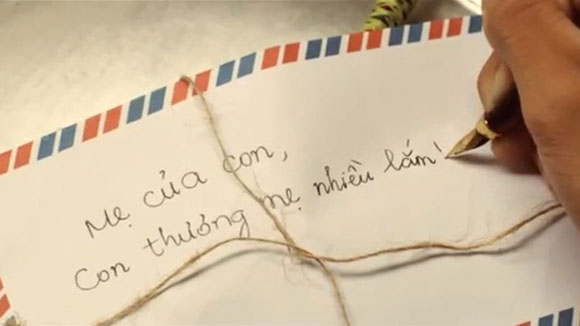 Mẹ của con,
Con thương mẹ nhiều lắm!